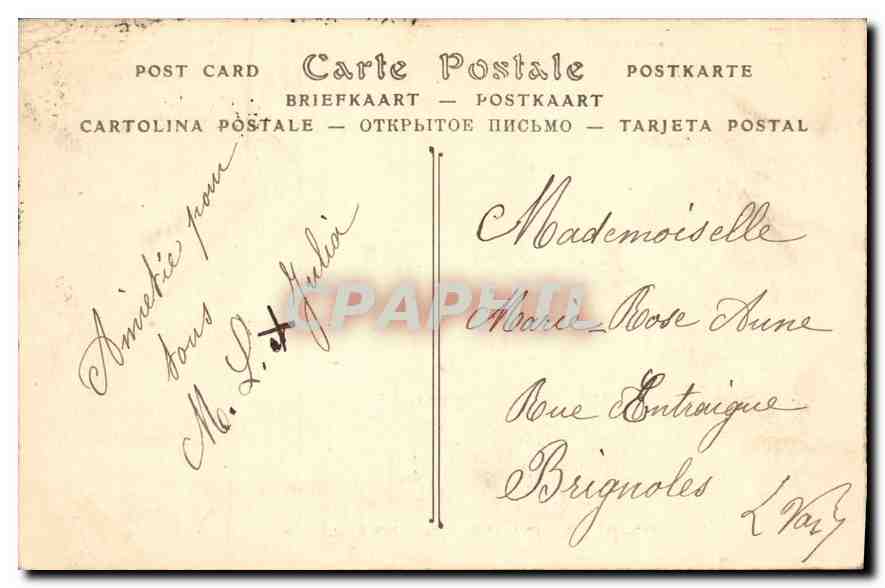 POST CARD Carte Postale POSTKARTE
BRIEFKAART — POSTKAART
CARTOLINA POSTALE — ОТКРЫТОЕ ПИСЬМО — TARJETA POSTAL
Amietié pour
tous
M. L. + Julia
Mademoiselle
Marie-Rose Aune
Rue Entraigue
Brignoles
Var
CPAPHIL